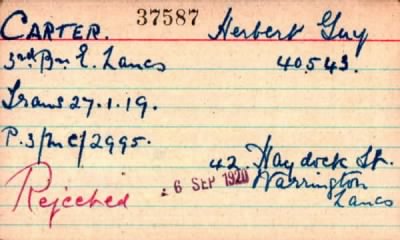 37587
CARTER. Herbert Guy
3rd. Bn E. Lancs 40543.
Trans 27.1.19.
P.3/MC/2995.
42. Haydock St.
Rejected 26 SEP 1920 Warrington
Lancs